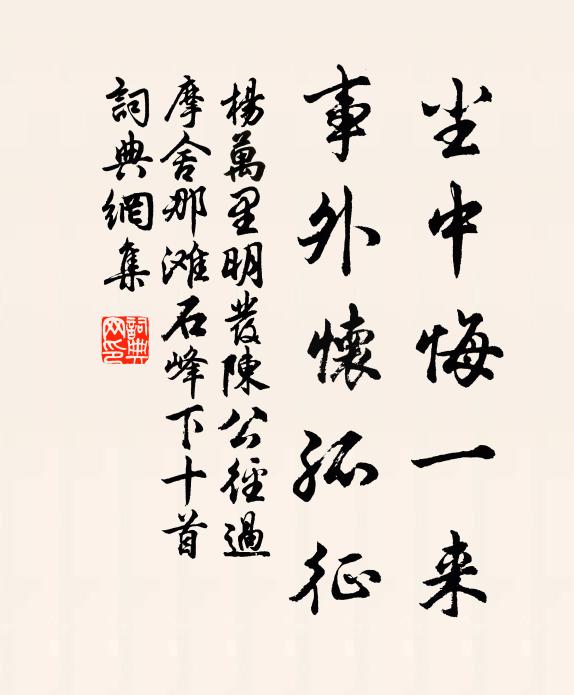 尘中悔一来
事外懷孤征
楊萬里明發陳公徑過
摩舍那滩石峰下十首
詞典網集
詞典网印